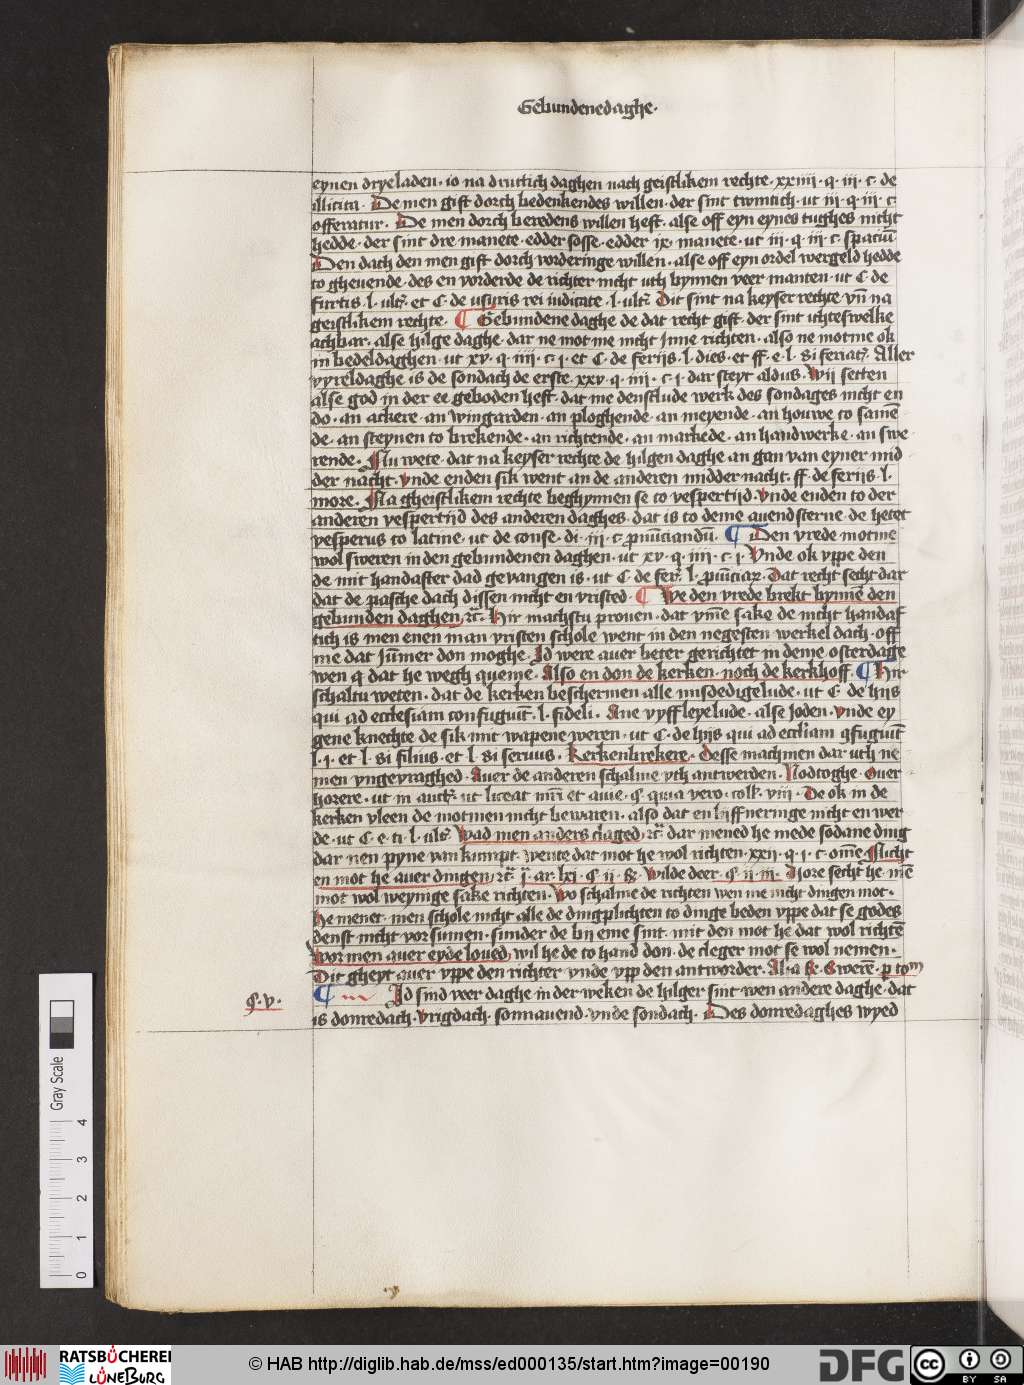 Gebundenedaghe·
eynen dryeladen· io na druttich daghen nach geistlikem rechte· xxiiii· q· iii· c· de
illicita· De men gift dorch bedenkendes willen· der sint twintich· ut iii· q· iii· c·
offeratur· De men dorch beredens willen heft· alse off eyn eynes tughes nicht
hedde· der sint dre manete· edder sosse· edder ix· manete· ut iii· q· iii· c· spaciū
Den dach den men gift dorch vorderinge willen· alse off eyn ordel wergeld hedde
to gheuende· des en vorderde de richter nicht uth bynnen veer manten· ut C de
furtis· l· ult· et C· de usuris rei iudicate· l· ult· Dit sint na keyser rechte vn̄ na
geistlikem rechte· ¶ Gebundene daghe de dat recht gift· der sint ichteswelke
achbar· alse hilge daghe· dar ne mot me nicht Inne richten· also ne motme ok
in bedeldaghen· ut xv· q· iiii· c· i· et C· de ferijs· l· dies· et ff· e· l· si feriat· Aller
vyreldaghe is de sondach de erste· xxv· q· iiii· c· i· dar steyt aldus· Wij setten
alse god in der ee geboden heft· dat me denstlude werk des sondages nicht en
do· an ackere· an wingarden· an ploghende· an meyende· an houwe to samē
de· an steynen to brekende· an richtende· an markede· an handwerke· an swe
rende· Nu wete· dat na keyser rechte de hilgen daghe an gan van eyner mid
der nacht· Vnde enden sik went an de anderen midder nacht· ff· de ferijs· l·
more· Na gheistlikem rechte beghynnen se to vespertijd· Vnde enden to der
anderen vespertijd des anderen daghes· dat is to deme auendsterne· de hetet
vesperus to latine· ut de conse· di· iii· c· pnūciandū· ¶ Den vrede motme
wol sweren in den gebundenen daghen· ut xv· q· iiii· c· i· Vnde ok vppe den
de mit handafter dad gevangen is· ut C de fer· l· puīciaꝝ· Dat recht secht dar
dat de pasche dach dissen nicht en vristed· ¶ We den vrede brekt bynnē den
gebunden daghen ꝛc̄· Hir machstu prouen· dat vm̄e sake de nicht handaf
tich is men enen man vristen schole went in den negesten werkel dach· off
me dat Jūmer don moghe· Id were auer beter gerichtet in deme osterdage
wen q dat he wegh queme· Also en don de kerken· noch de kerkhoff· ¶ Hir
schaltu weten· dat de kerken beschermen alle missedigelude· ut C de hijs
qui ad ecclesiam confugiūt· l· fideli· Ane vyffleyelude· alse Joden· Vnde ey
gene knechte de sik mit wapene weren· ut C· de hijs qui ad eccliam ꝯfugiūt
l· i· et l· si filius· et l· si seruus· Kerkenbrekere· Desse machmen dar uth ne
men vngevraghed· Auer de anderen schalme vth antwerden· Nodtoghe· Ouer
horere· ut in auct· ut liceat mr̄i et auie· §· quia vero· coll· viii· De ok in de
kerken vleen de motmen nicht bewaren· also dat en liffneringe nicht en wer
de· ut C· e· ti· l· ult· Wad men anders claged ꝛc̄ dar mened he mede sodane ding
dar nen pyne van kumpt· wente dat mot he wol richten· xxii· q· i· c· om̄e· Nicht
en mot he auer dingen ꝛc̄ j· ar· lxi· §· ii· &· Wilde deer· §· ii· iii· Hore secht he· mē
mot wol weynige sake richten· Wo schalme de richten wen me nicht dingen mot·
He menet· men schole nicht alle de dingplichten to dinge beden vppe dat se godes
denst nicht vorsumen· sunder de bij eme sint· mit den mot he dat wol richtē
Wor men auer eyde loued, wil he de to hand don· de cleger mot se wol nemen·
Dit gheyt auer vppe den richter vnde vpp den antworder· Al· a &· Swerē· p totm
§· v· ¶ Id sind veer daghe in der weken de hilger sint wen andere daghe· dat
is donredach· Vrigdach· sonnauend· Vnde sondach· Des donredaghes wyed
Gray Scale
4
3
2
1
0
RATSBÜCHEREI LÜNEBURG
© HAB http://diglib.hab.de/mss/ed000135/start.htm?image=00190
DFG
cc BY SA